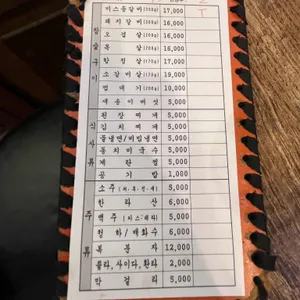 미스웅갈비(300g) 17,000
돼지갈비(300g) 16,000
오겹살(200g) 16,000
목살(200g) 16,000
항정살(170g) 17,000
소갈비살(170g) 19,000
껍데기(200g) 10,000
새송이버섯 5,000
식사류
된장찌개 5,000
김치찌개 5,000
물냉면/비빔냉면 5,000
동치미국수 5,000
계란찜 5,000
공기밥 1,000
주류
소주 5,000
한라산 6,000
맥주 5,000
청하/백화수 6,000
복분자 12,000
콜라, 사이다, 환타 2,000
막걸리 5,000